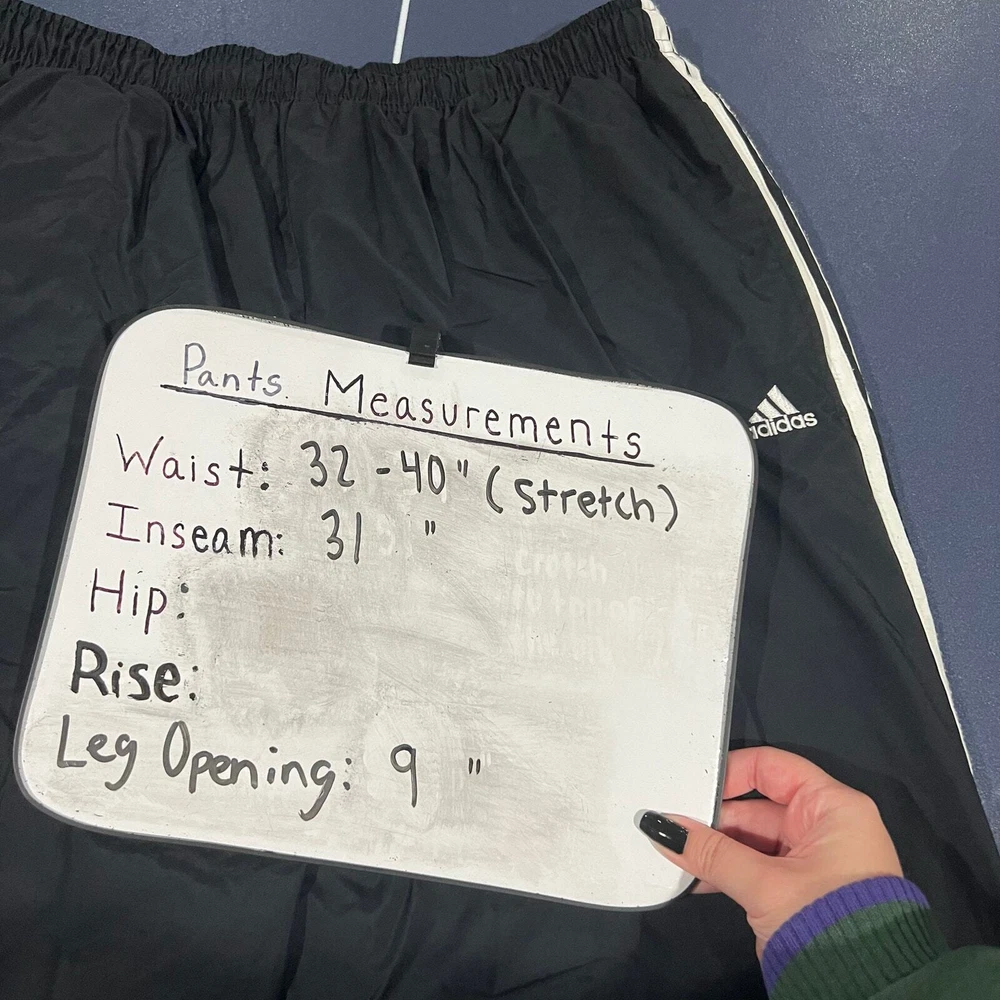 Pants Measurements
Waist: 32 - 40" (stretch)
Inseam: 31 "
Hip:
Rise:
Leg Opening: 9 "
adidas